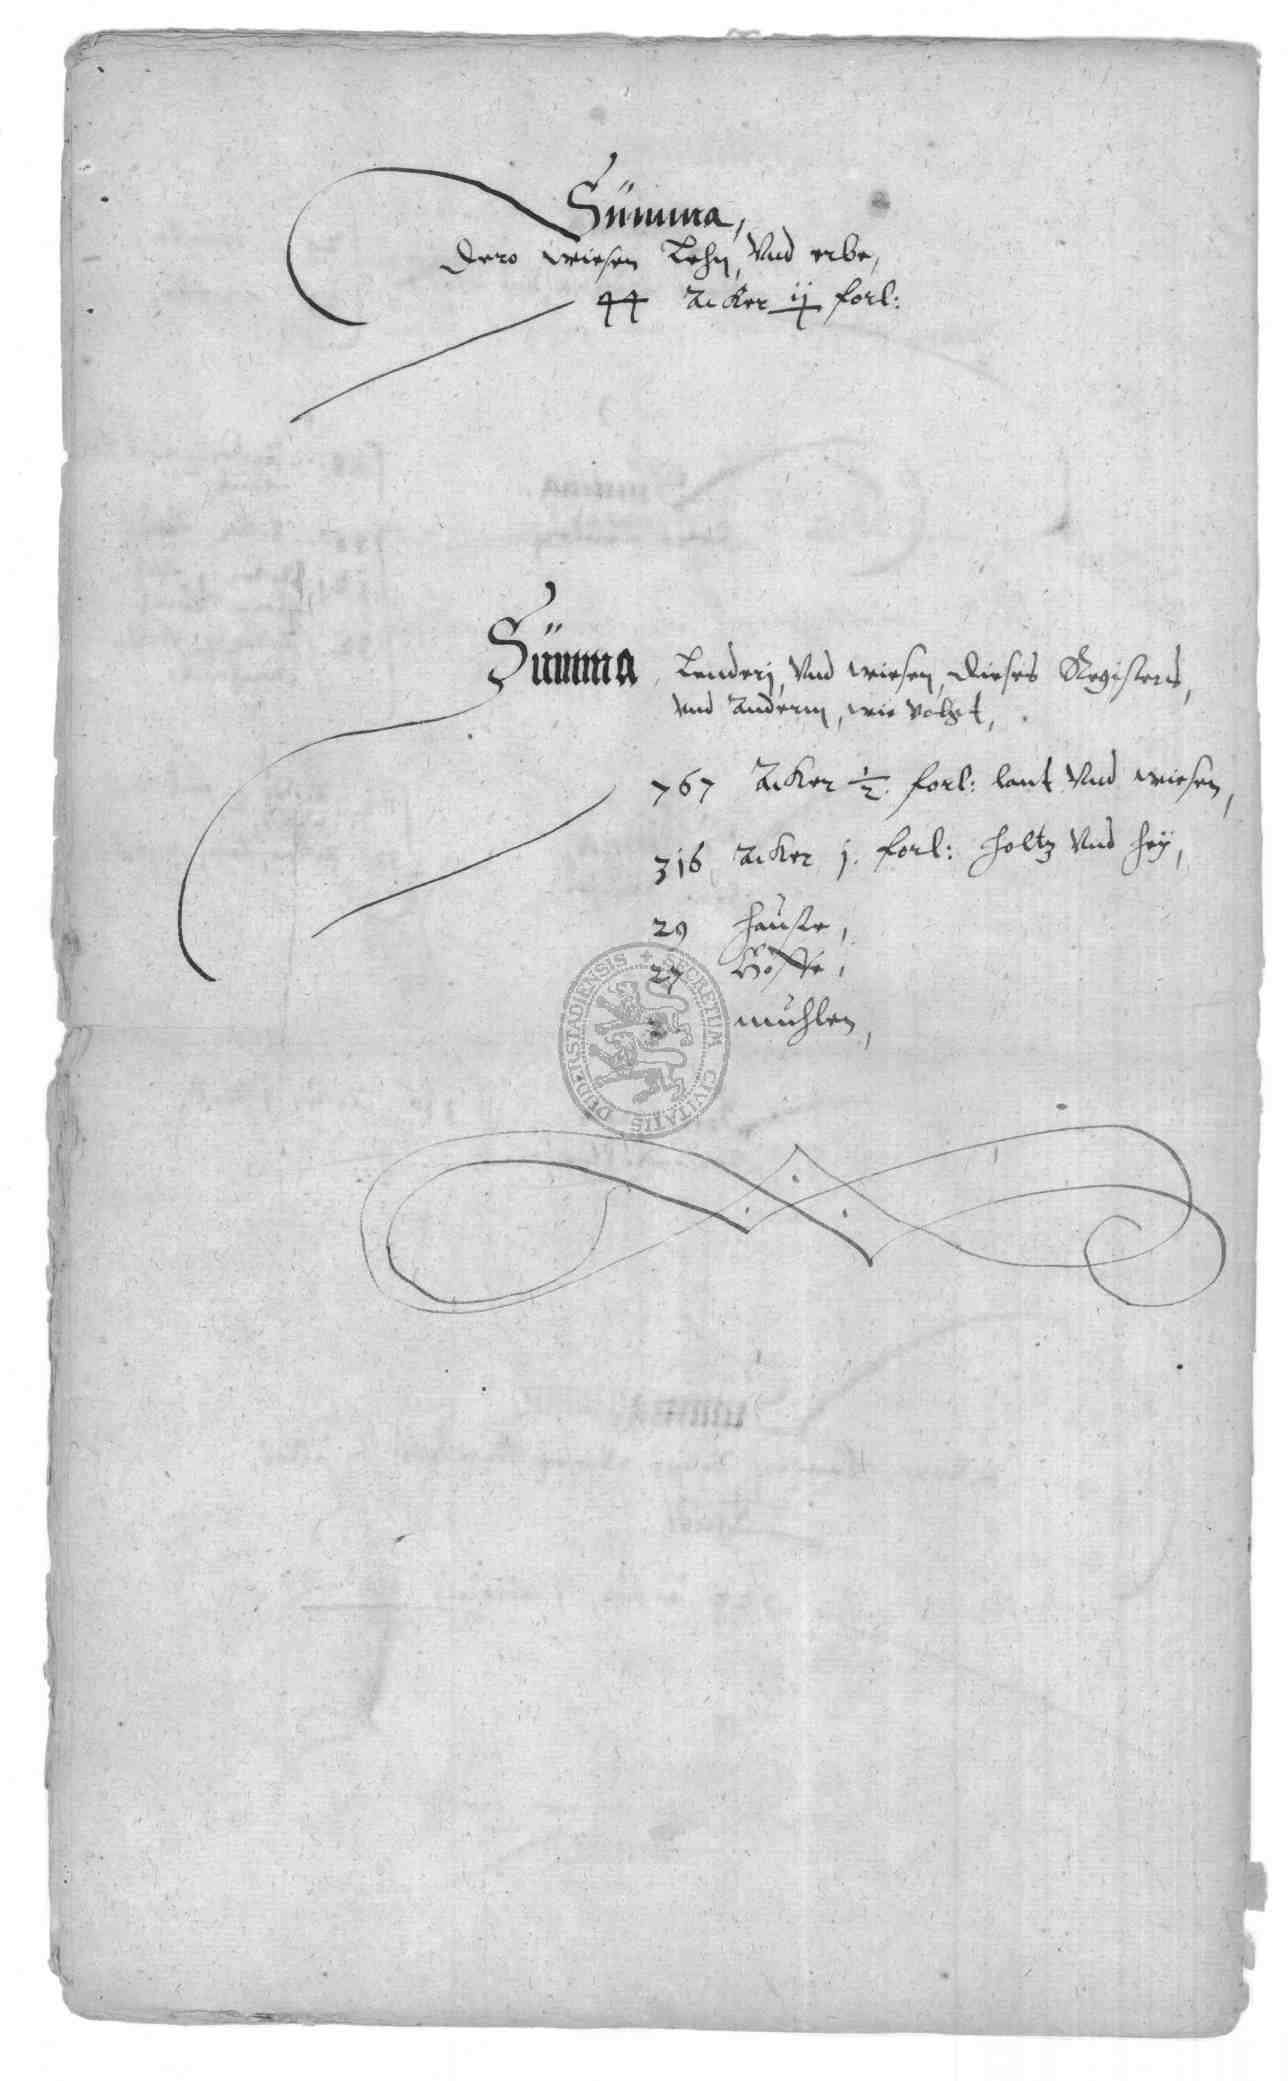 Summa,
Dero wiesen Lehn, Vnd erbe,
44 Acker ij forl:
Summa, Lenderj, Vnd wiesen, Dieses Registers,
vnd anderm, wie volgt,
767 Acker 1/2. forl: lant Vnd wiesen,
316 Acker j. forl: holtz Vnd heÿ,
29 heuser,
27 Höffe,
3 muhlen,
SECRETUM CIVITATIS DUDERSTADIENSIS